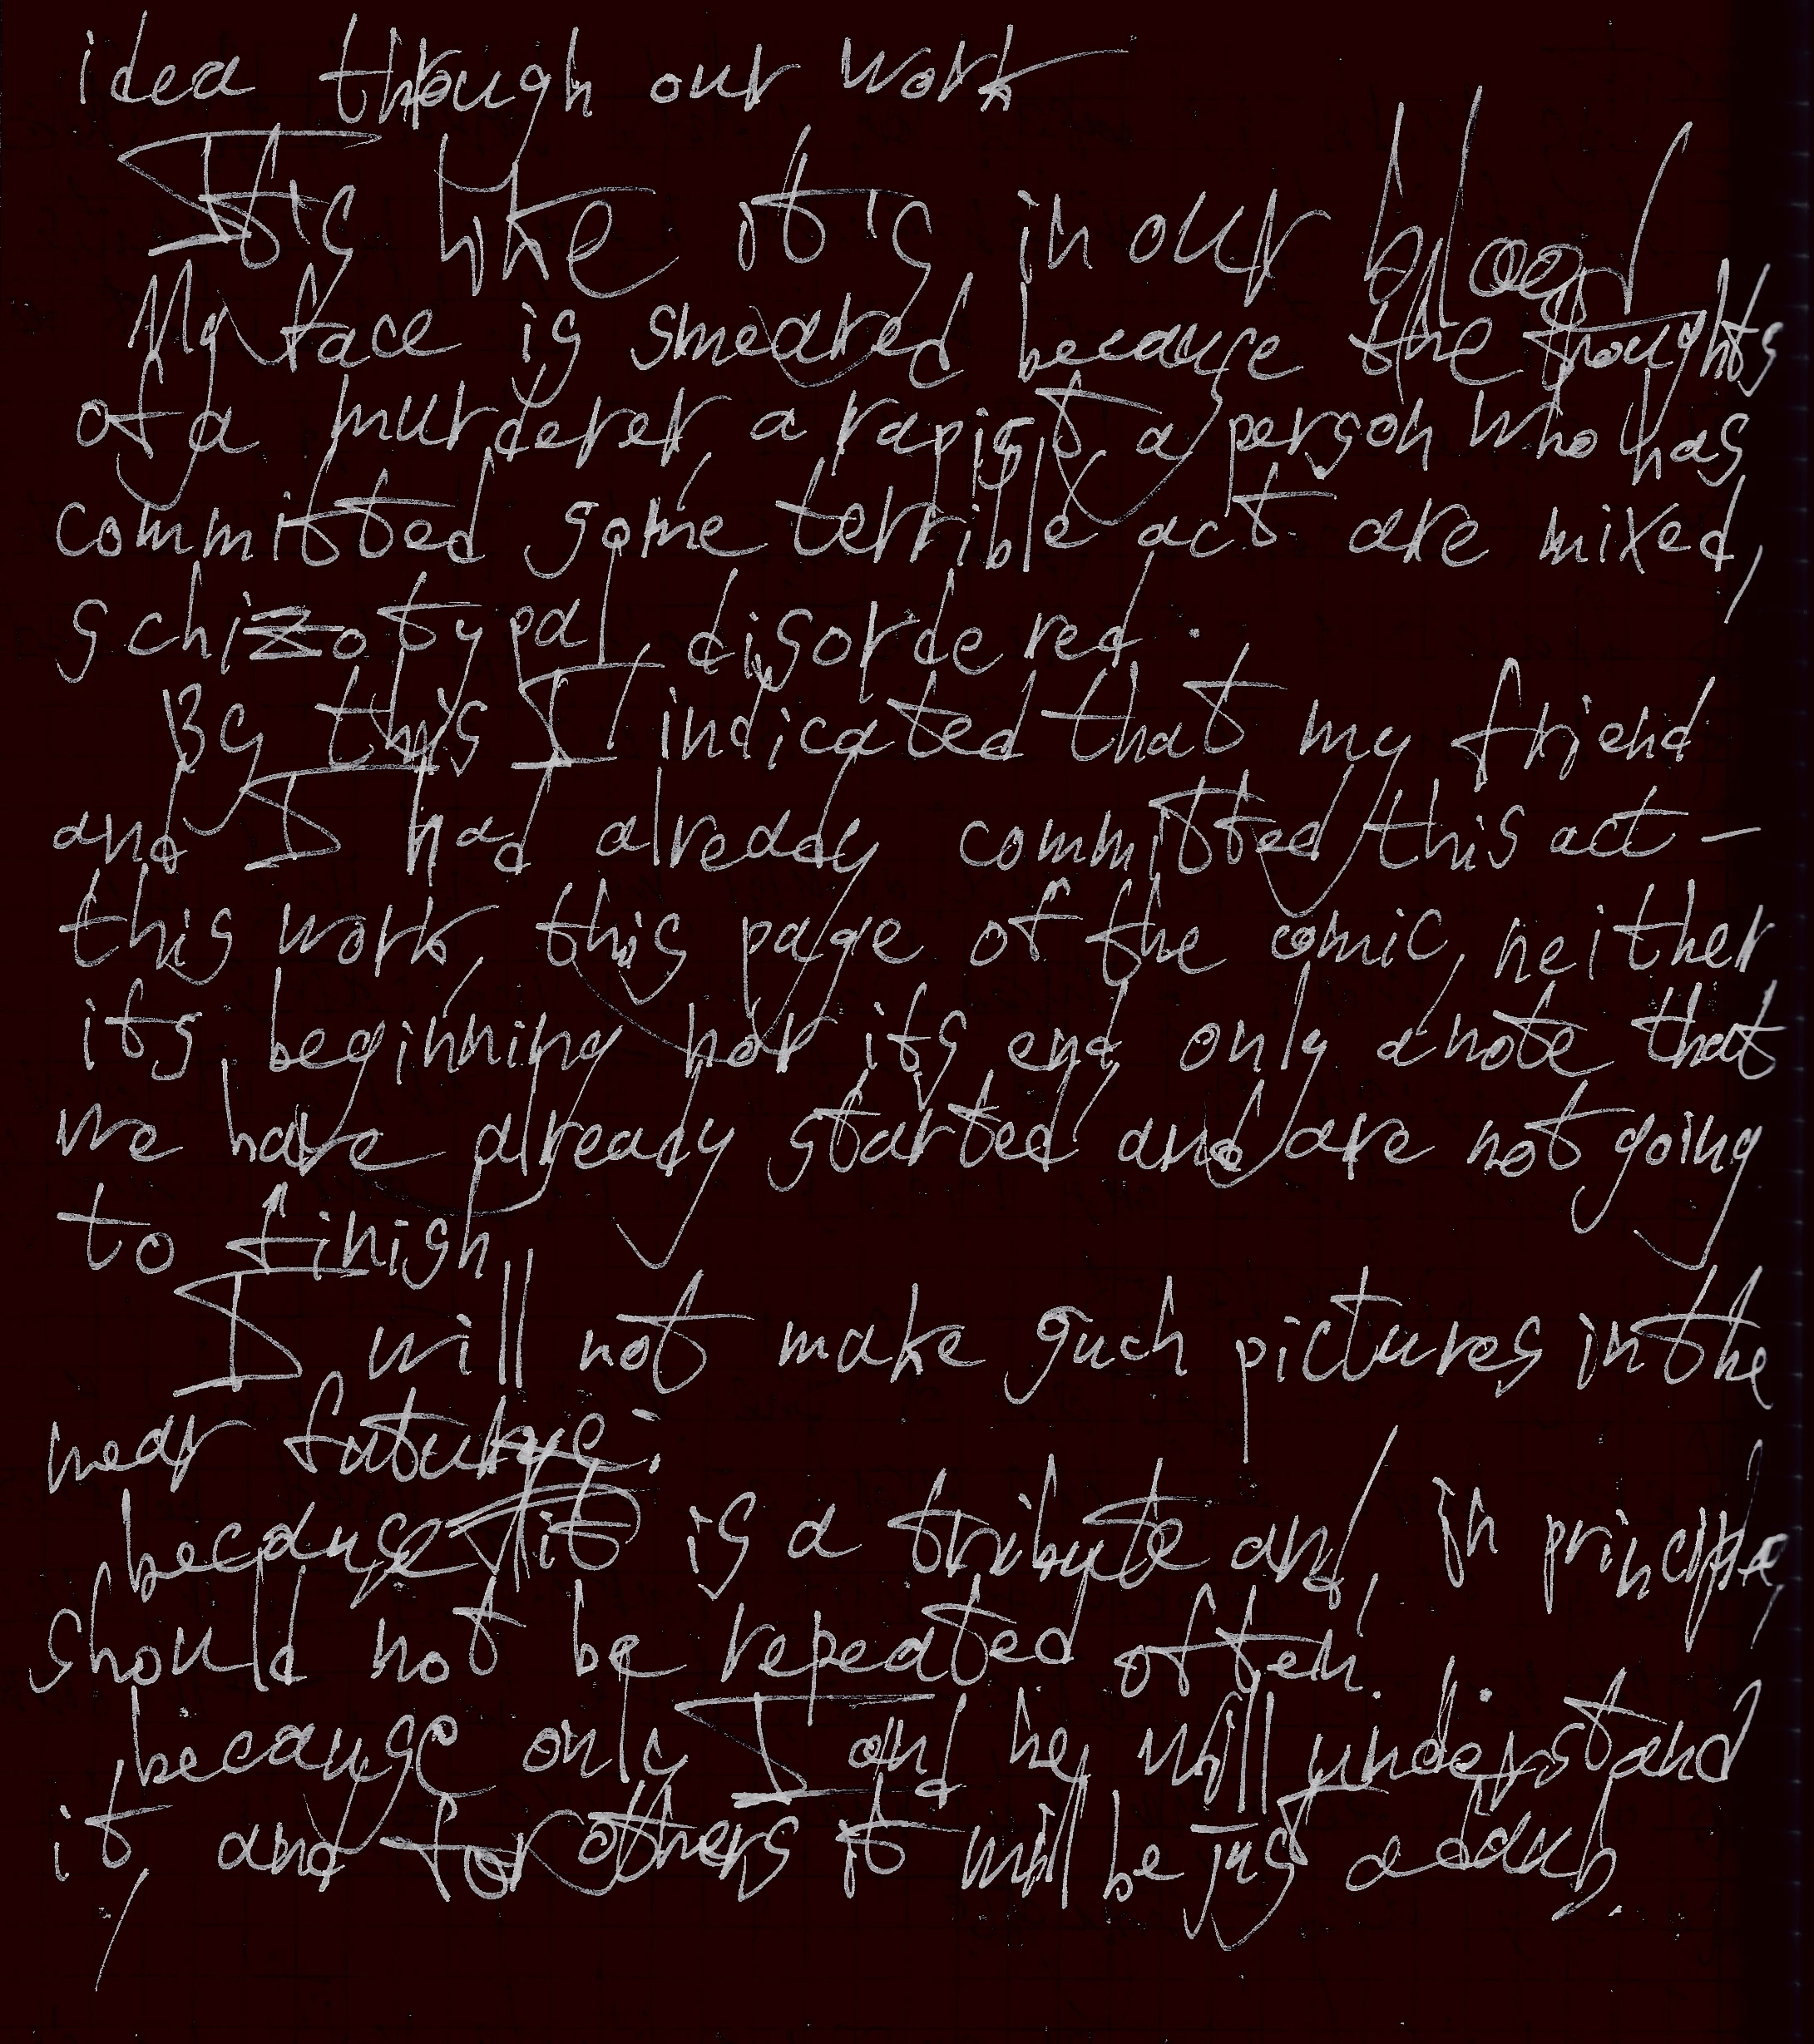 idea through our work
It's like it's in our blood
My face is smeared because the thoughts
of a murderer, a rapist, a person who has
committed some terrible act are mixed,
schizotypal, disordered.
By this I indicated that my friend
and I had already committed this act –
this work, this page of the comic, neither
its beginning nor its end, only a note that
we have already started and are not going
to finish
I will not make such pictures in the
near future:
because it is a tribute and, in principle,
should not be repeated often.
because only I and he will understand
it, and for others it will be jus a daub.